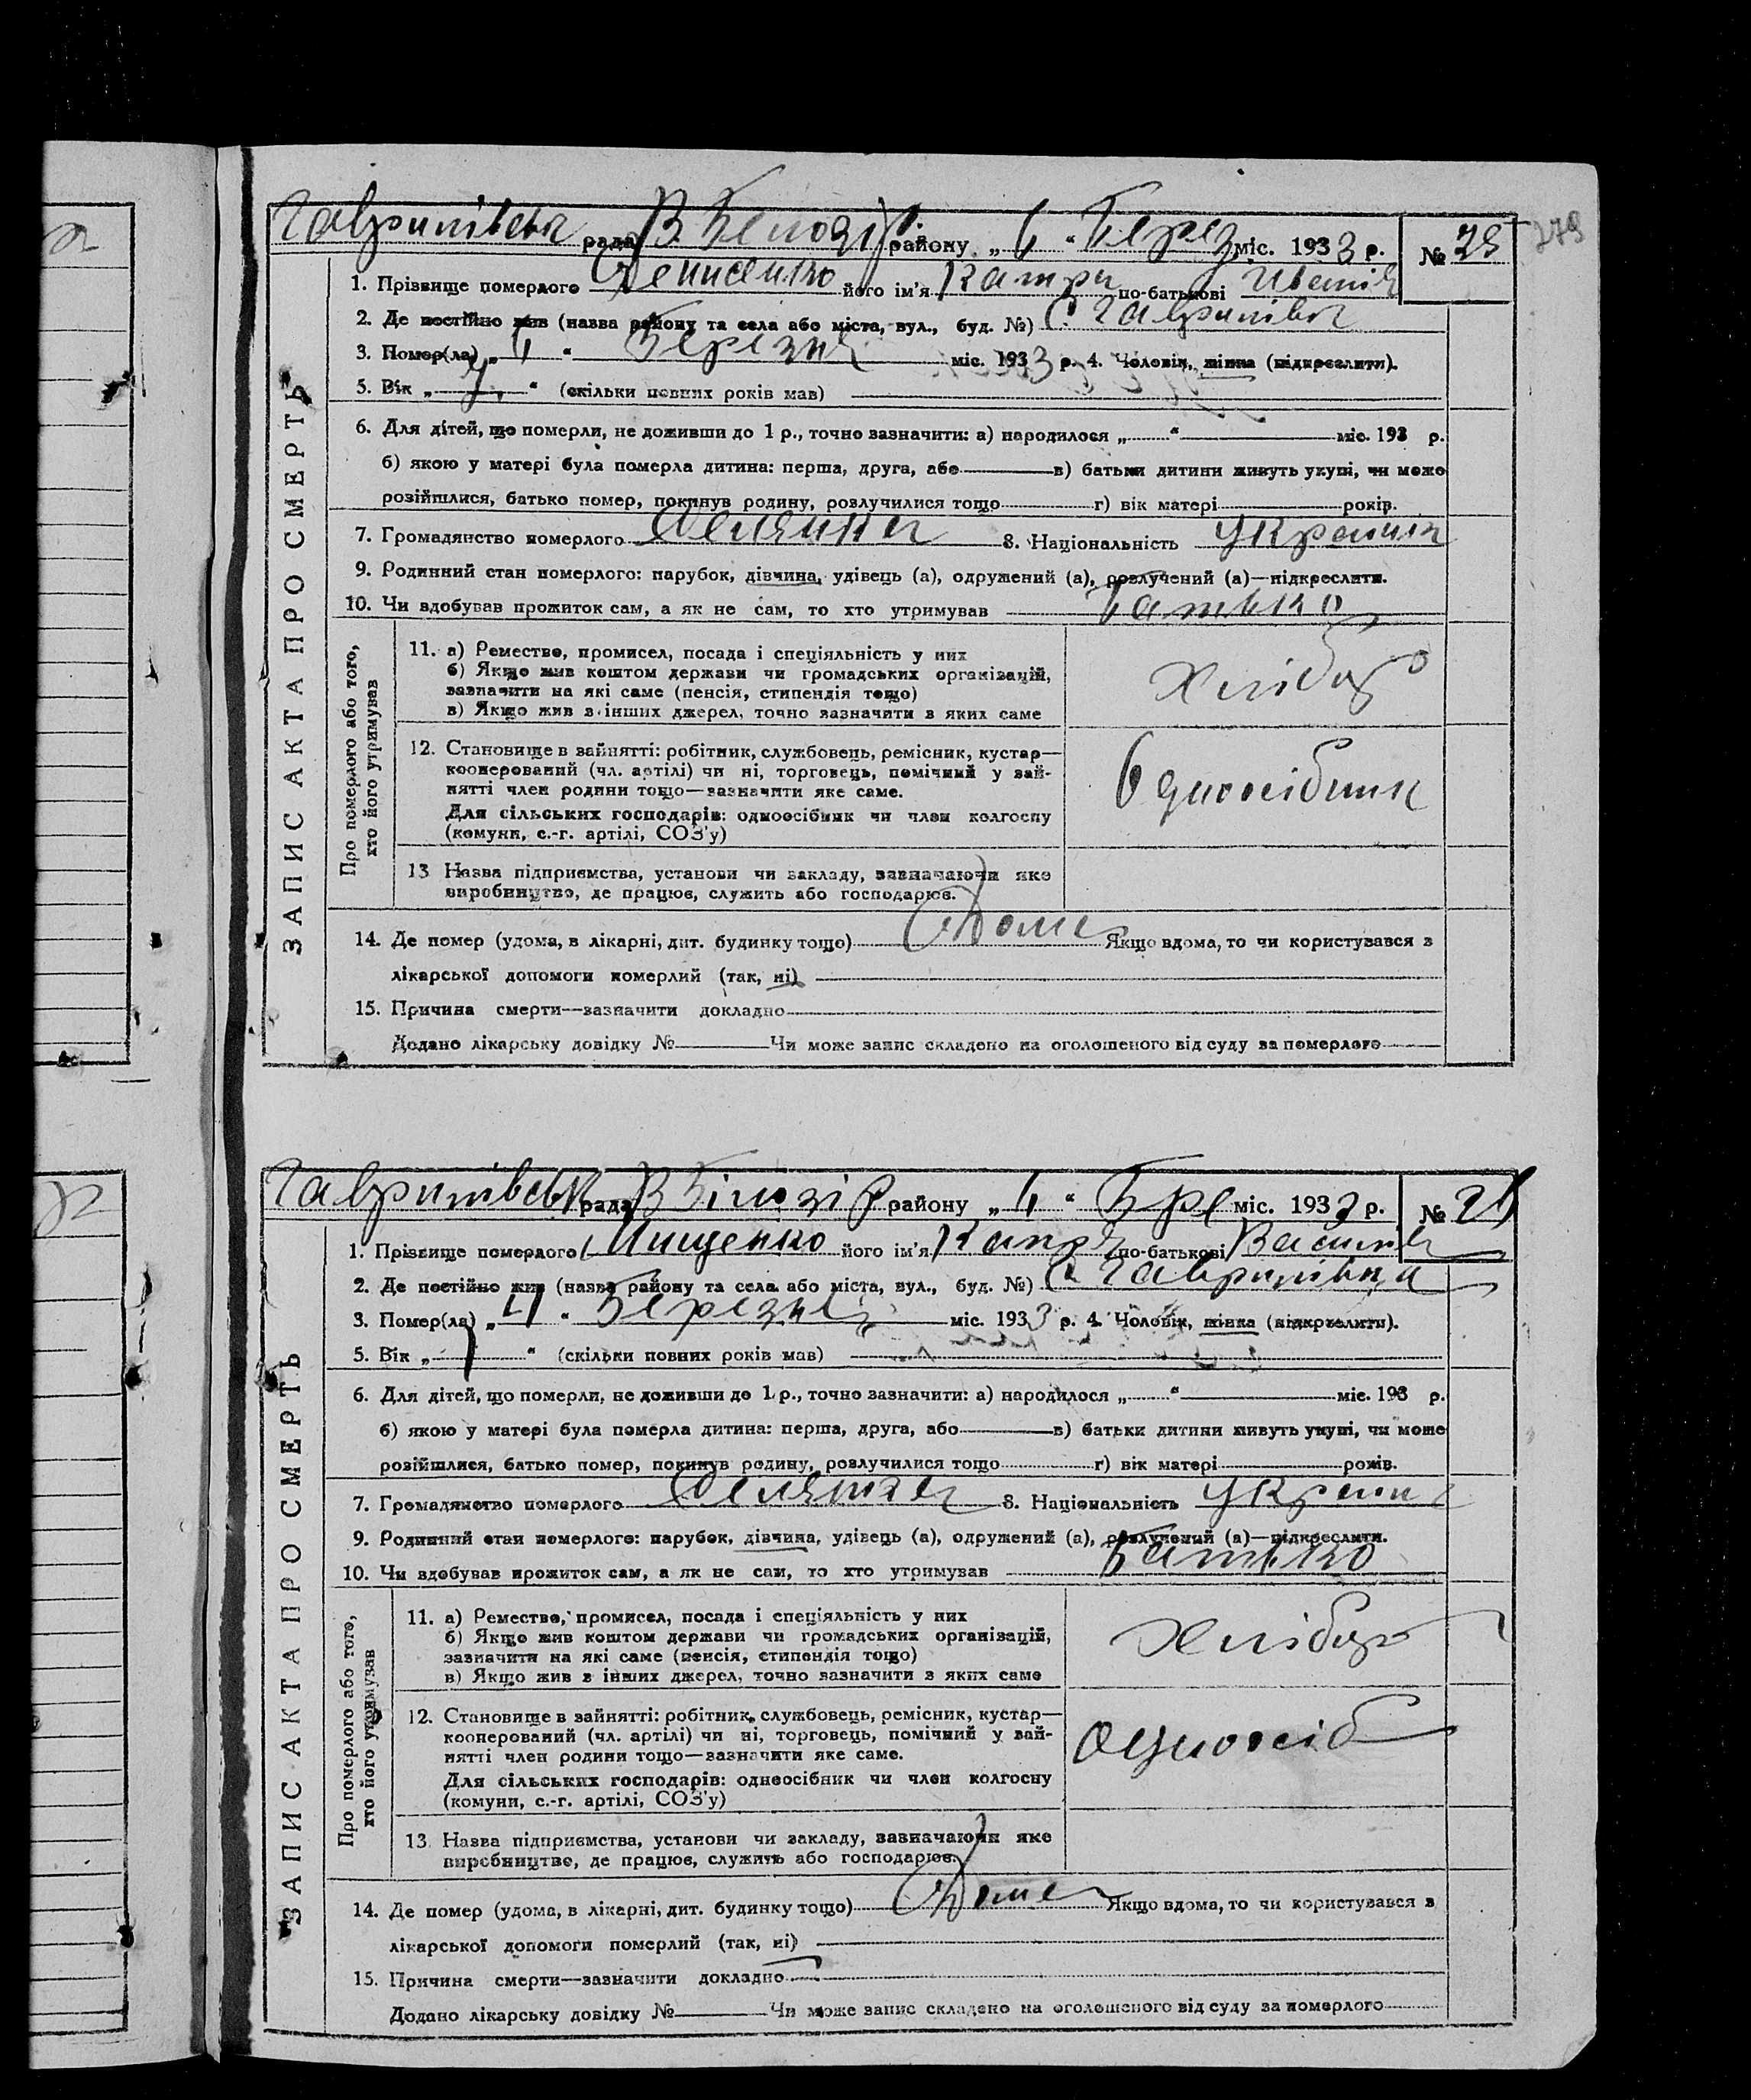 Гаврилівська рада В. Білозір. району „ 4 “ Берез міс. 1933 р. №
279
1. Прізвище померлого Денисенко його ім'я Катря по-батькові
2. Де постійно жив (назва району та села або міста, вул., буд. №) с. Гаврилівка
3. Помер(ла) „ 4 “ Березня міс. 1933 р. 4. Чоловік, жінка (підкреслити).
5. Вік „ “ (скільки повних років мав)
6. Для дітей, що померли, не доживши до 1 р., точно зазначити: а) народилося „ “ міс. 193 р.
б) якою у матері була померла дитина: перша, друга, або в) батьки дитини живуть укупі, чи може
розійшлися, батько помер, покинув родину, розлучилися тощо г) вік матері років.
7. Громадянство померлого Селянка 8. Національність Україн
9. Родинний стан померлого: парубок, дівчина, удівець (а), одружений (а), розлучений (а)—підкреслити.
10. Чи здобував прожиток сам, а як не сам, то хто утримував батько
ЗАПИС АКТА ПРО СМЕРТЬ
Про померлого або того,
хто його утримував
11. а) Ремество, промисел, посада і спеціяльність у них
б) Якщо жив коштом держави чи громадських організацій,
зазначити на які саме (пенсія, стипендія тощо)
в) Якщо жив з інших джерел, точно зазначити з яких саме
Хлібор
12. Становище в зайнятті: робітник, службовець, ремісник, кустар—
кооперований (чл. артілі) чи ні, торговець, помічний у зай-
нятті член родини тощо—зазначити яке саме.
Для сільських господарів: одноосібник чи член колгоспу
(комуни, с.-г. артілі, СОЗ'у)
Одноосібник
13 Назва підприємства, установи чи закладу, зазначаючи яке
виробництво, де працює, служить або господарює.
14. Де помер (удома, в лікарні, дит. будинку тощо) Дома Якщо вдома, то чи користувався з
лікарської допомоги померлий (так, ні)
15. Причина смерти—зазначити докладно
Додано лікарську довідку № Чи може запис складено на оголошеного від суду за померлого
Гаврилівськ рада В Білозір району „ 4 “ Бере міс. 1933 р. №
1. Прізвище померлого Нищенко його ім'я Катря по-батькові Василів
2. Де постійно жив (назва району та села або міста, вул., буд. №) с. Гаврилівка
3. Помер(ла) „ 4 “ Березня міс. 1933 р. 4. Чоловік, жінка (підкреслити).
5. Вік „ “ (скільки повних років мав)
6. Для дітей, що померли, не доживши до 1 р., точно зазначити: а) народилося „ “ міс. 193 р.
б) якою у матері була померла дитина: перша, друга, або в) батьки дитини живуть укупі, чи може
розійшлися, батько помер, покинув родину, розлучилися тощо г) вік матері років.
7. Громадянство померлого Селянка 8. Національність Україн
9. Родинний стан померлого: парубок, дівчина, удівець (а), одружений (а), розлучений (а)—підкреслити.
10. Чи здобував прожиток сам, а як не сам, то хто утримував батько
ЗАПИС АКТА ПРО СМЕРТЬ
Про померлого або того,
хто його утримував
11. а) Ремество, промисел, посада і спеціяльність у них
б) Якщо жив коштом держави чи громадських організацій,
зазначити на які саме (пенсія, стипендія тощо)
в) Якщо жив з інших джерел, точно зазначити з яких саме
Хлібор
12. Становище в зайнятті: робітник, службовець, ремісник, кустар—
кооперований (чл. артілі) чи ні, торговець, помічний у зай-
нятті член родини тощо—зазначити яке саме.
Для сільських господарів: одноосібник чи член колгоспу
(комуни, с.-г. артілі, СОЗ'у)
Одноосіб
13. Назва підприємства, установи чи закладу, зазначаючи яке
виробництво, де працює, служить або господарює.
14. Де помер (удома, в лікарні, дит. будинку тощо) Дома Якщо вдома, то чи користувався з
лікарської допомоги померлий (так, ні)
15. Причина смерти—зазначити докладно
Додано лікарську довідку № Чи може запис складено на оголошеного від суду за померлого